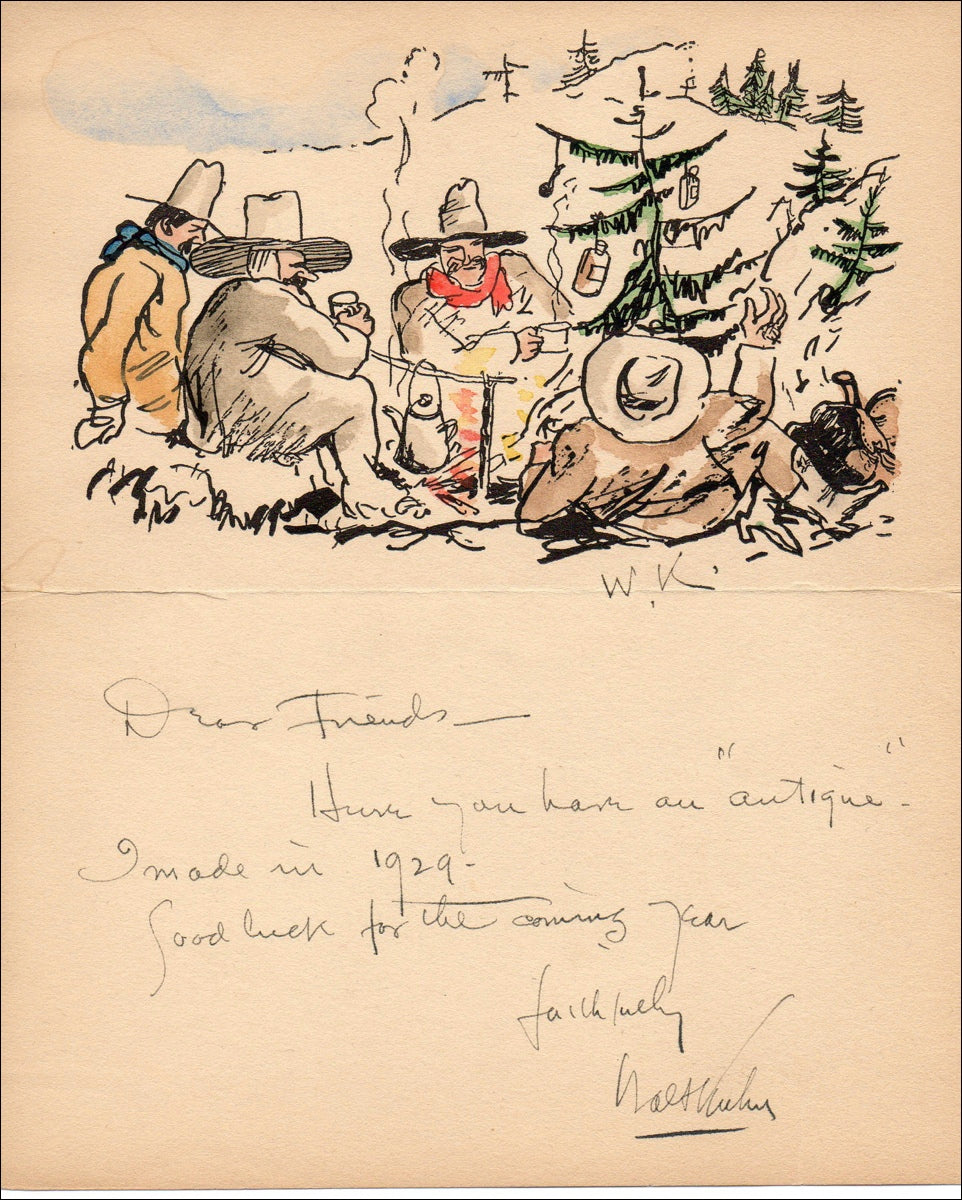 W.K.
Dear Friends—
Here you have an "antique"-
I made in 1929-
Good luck for the coming year
faithfully
Walt Kuhn